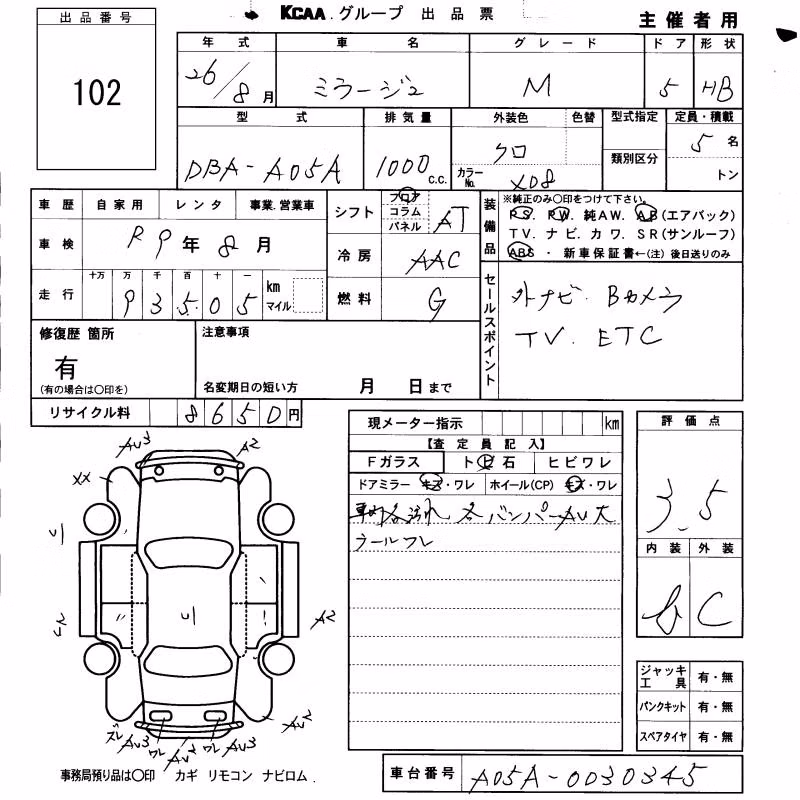 出品番号
102
KCAA.グループ 出品票
主催者用
年式 車名 グレード ドア 形状
26/8月 ミラージュ M 5 HB
型式 排気量 外装色 色替 型式指定 定員・積載
DBA-A05A 1000c.c. クロ 類別区分 5名
カラーNo. X08 トン
車歴 自家用 レンタ 事業.営業車
車検 R9年8月
走行 十万 万 千 百 十 一 km マイル
93505
シフト フロア コラム パネル AT
冷房 AAC
燃料 G
装備品 ※純正のみ〇印をつけて下さい。
PS. PW. 純AW. AB(エアバック)
TV. ナビ. カワ. SR(サンルーフ)
ABS ・ 新車保証書←(注) 後日送りのみ
セールスポイント
外ナビ. Bカメラ
TV. ETC
修復歴 箇所
有
(有の場合は〇印を)
注意事項
名変期日の短い方 月 日まで
リサイクル料 8650円
現メーター指示 km
【査定員記入】
Fガラス ト ビ 石 ヒビワレ
ドアミラー キズ・ワレ ホイール(CP) キズ・ワレ
車内各汚れ 各バンパーAU大
ラールワレ
評価点
3.5
内装 外装
b C
ジャッキ工具 有・無
パンクキット 有・無
スペアタイヤ 有・無
AU3 A2
XX
A2
AU2
ズレ AU3 ワレ ワレ AU3
事務局預り品は〇印 カギ リモコン ナビロム.
車台番号 A05A-0030345